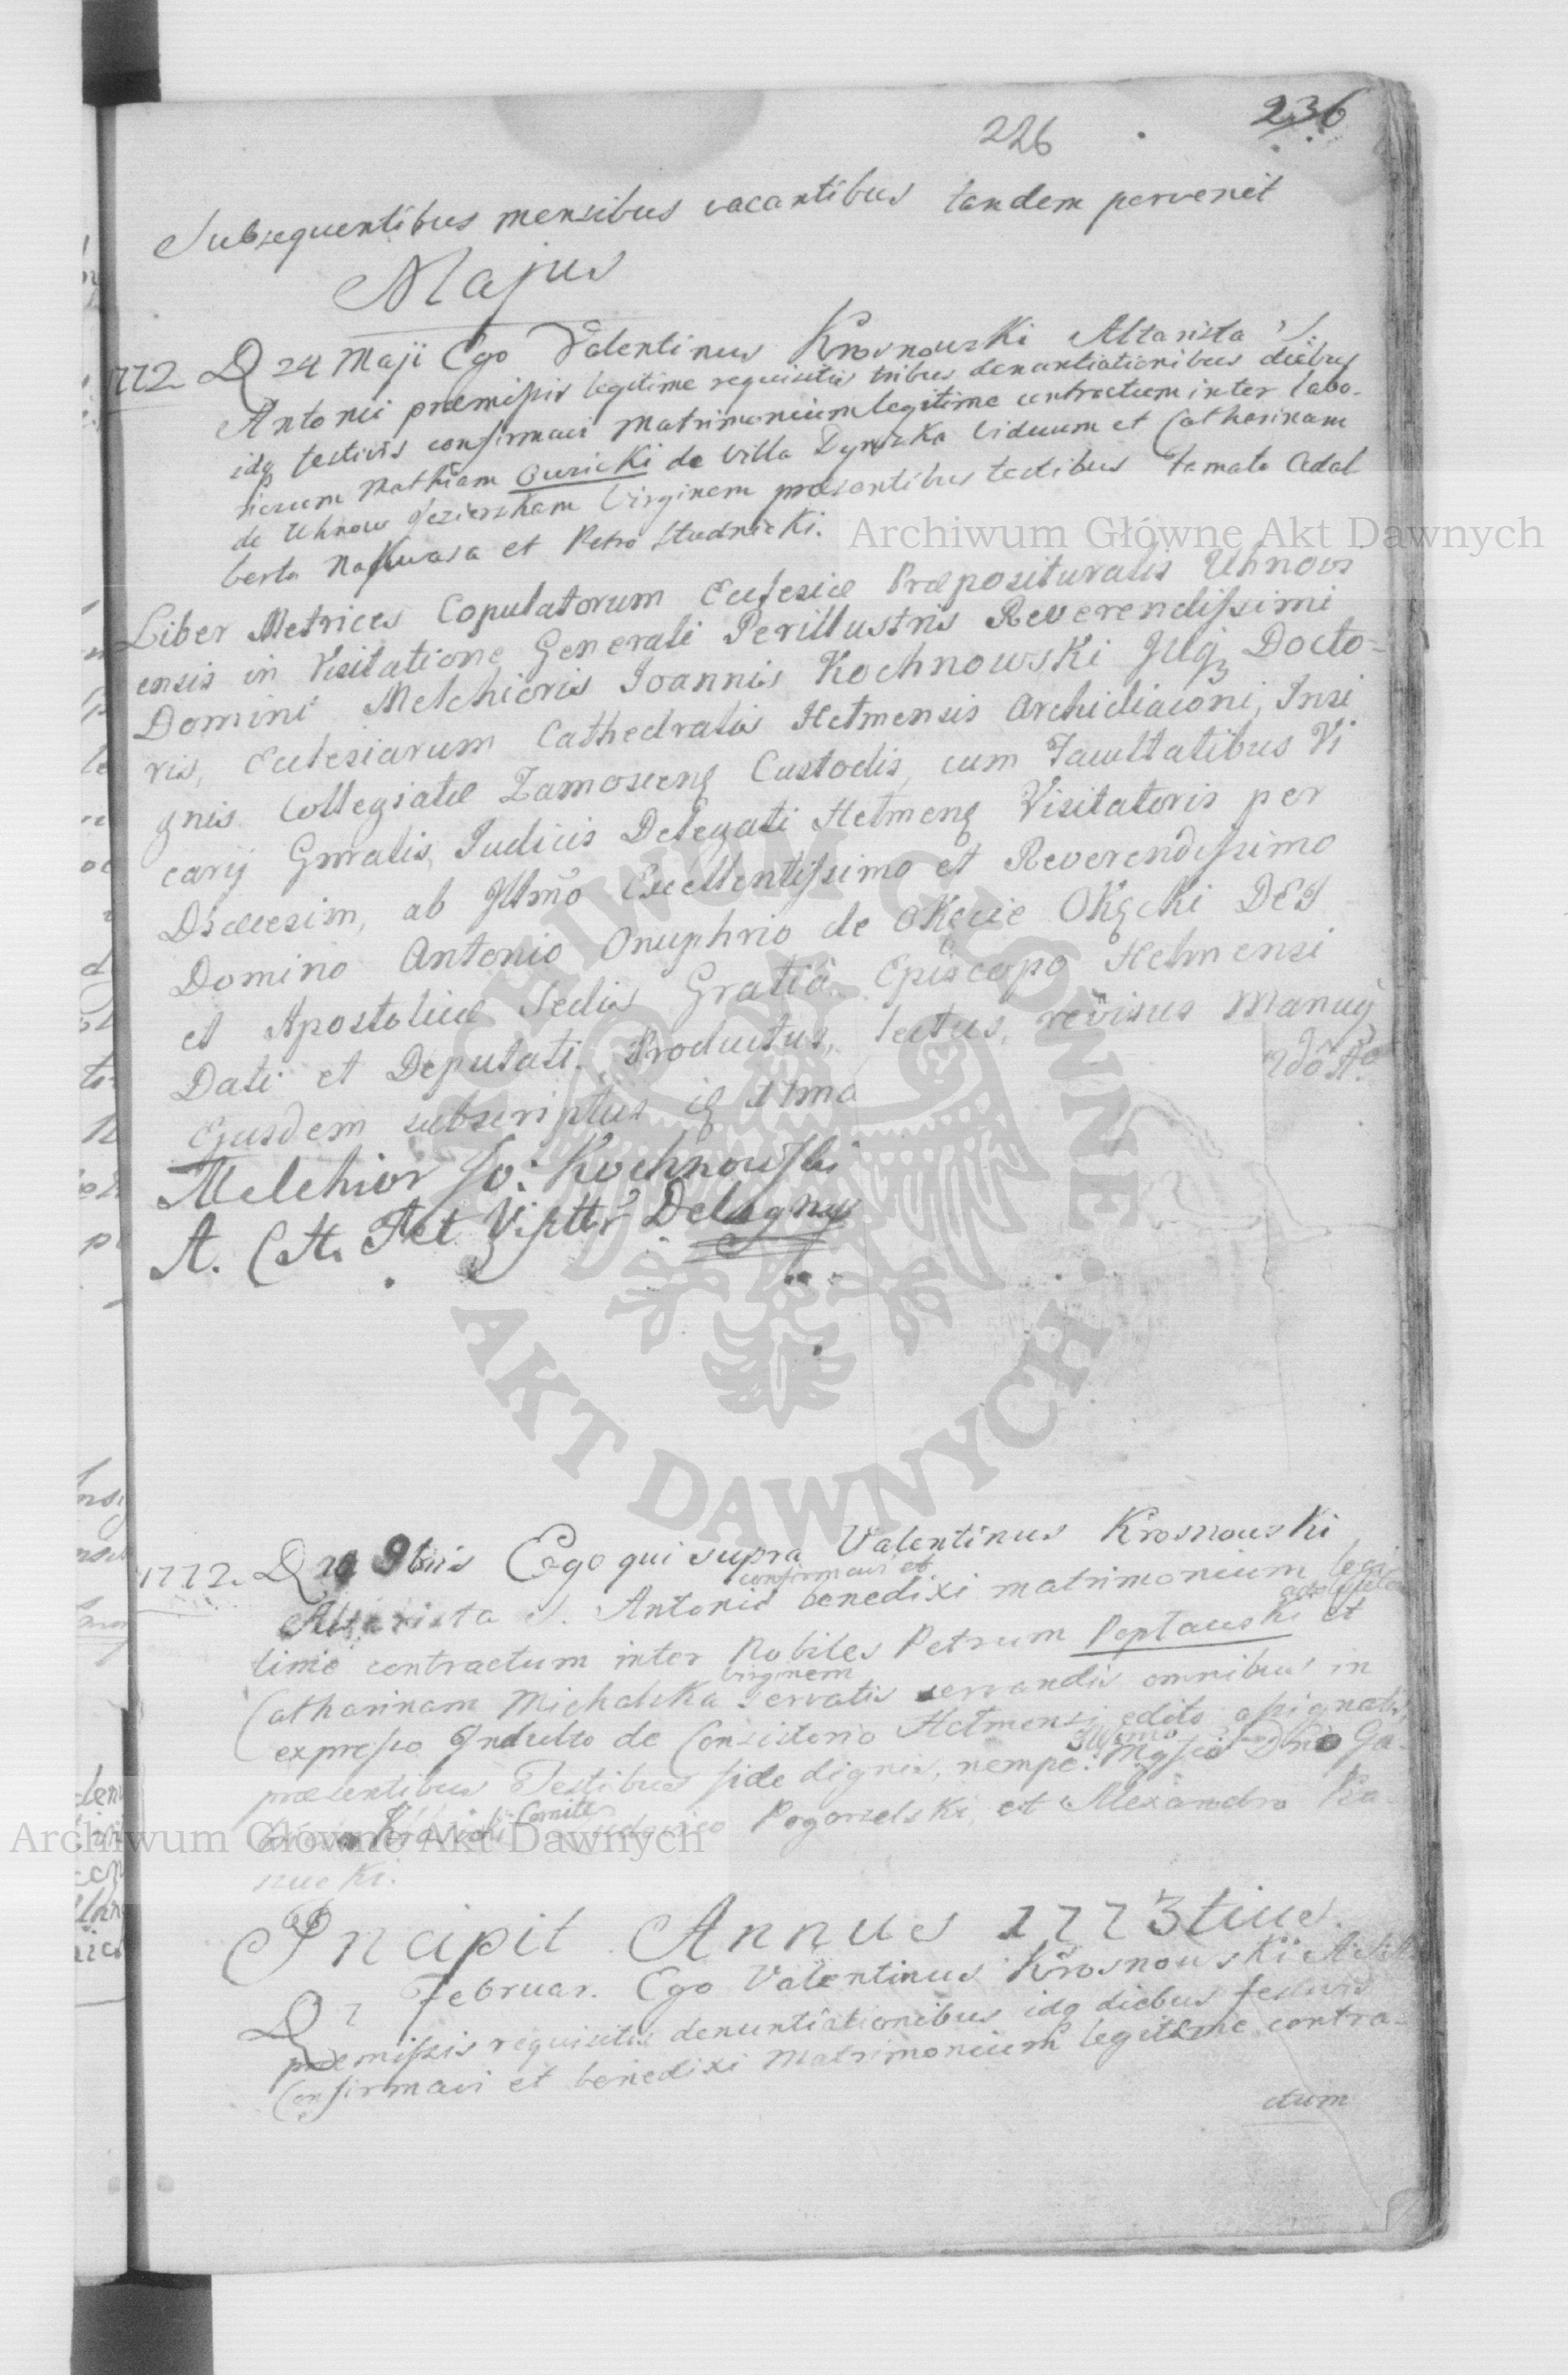 226
236
Subsequentibus mensibus vacantibus tandem pervenit
Majus
1772. D 24 Maji Ego Valentinus Krosnowski Altarista S.
Antonii præmissis legitime requisitis tribus denuntiationibus diebus
idq festivis confirmavi Matrimonium legitime contractum inter labo-
riosum Mathiam Guzicki de Villa Dynyska Viduum et Catharinam
de Uhnow Jezierskam Virginem præsentibus testibus famato Adal
berto Nakwasa et Petro Studnicki.
Liber Metrices Copulatorum Ecclesiæ Præposituralis Uhnovi
ensis in Visitatione Generali Perillustris Reverendissimi
Domini Melchioris Joannis Kochnowski JUq Docto-
ris, Ecclesiarum Cathedralis Helmensis Archidiaconi, Insi
gnis Collegiatæ Zamoscens Custodis, cum Facultatibus Vi
carij Gnralis, Judicis Delegati Helmens Visitatoris per
Diæcesim, ab Illmo Excellentissimo et Reverendissimo
Domino Antonio Onuphrio de Okęcie Okęcki DEI
et Apostolicæ Sedis Gratiâ Episcopo Helmensi
Dati et Deputati. Productus, lectus, revisus Manuq
Ejusdem subscriptus
Melchior Jo: Kochnowski
A. C H.
1772. D 9bris Ego qui supra Valentinus Krosnowski
confirmavi et
Altarista S. Antonii benedixi matrimonium legi
time contractum inter Nobiles Petrum Poptawski et
virginem
Catharinam Michalska servatis servandis omnibus in
expresso Indulto de Consistorio Helmensi edito assignatis,
præsentibus Testibus fide dignis, nempe Dno Ga-
Comite
Krasicki Pogorzelski et Alexandro Ra
nucki.
Incipit Annus 1773tius.
D 7 Februar. Ego Valentinus Krosnowski
præmissis requisitis denuntiationibus idq diebus festivis
Confirmavi et benedixi Matrimonium legitime contra-
ctum
Archiwum Główne Akt Dawnych
Archiwum Główne Akt Dawnych
ARCHIWUM GŁÓWNE
AKT DAWNYCH